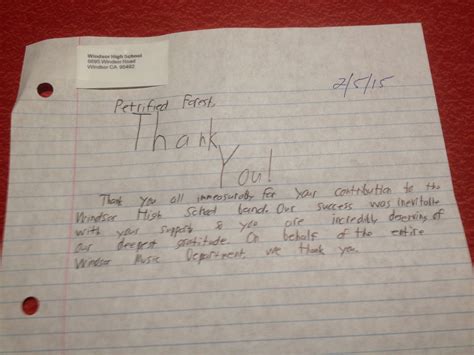 Windsor High School
8695 Windsor Road
Windsor CA 95492
2/5/15
Petrified Forest,
Thank
You!
Thank you all immeasurably for your contribution to the
Windsor High School band. Our success was inevitable
with your support & you are incredibly deserving of
our deepest gratitude. On behalf of the entire
Windsor Music Department we thank you.